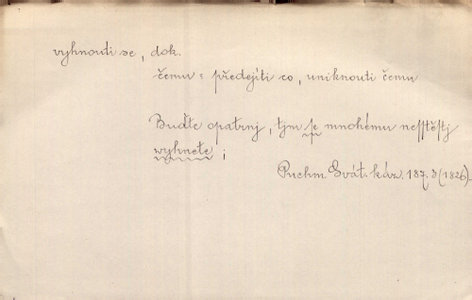 vyhnouti se, dok.
čemu = předejíti co, uniknouti čemu
Buďte opatrnj, tjm se mnohému nesstěstj
wyhnete ;
Puchm Svát. káz. 187. 3 (1826).